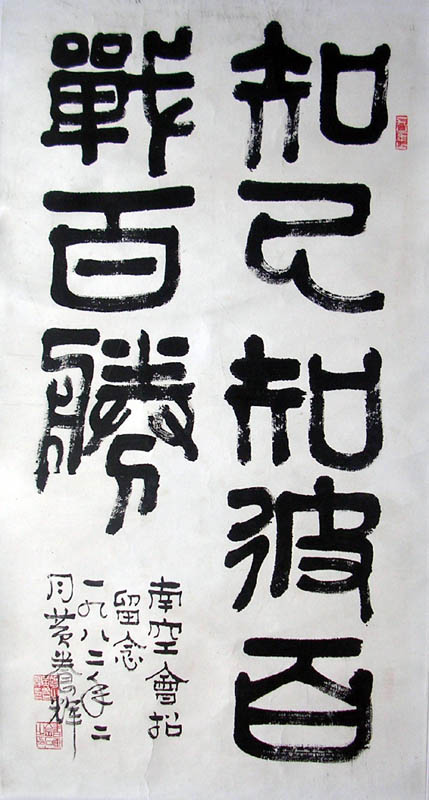 知己知彼百
戰百勝
南空會招
留念
一九八二年二
月黄養輝